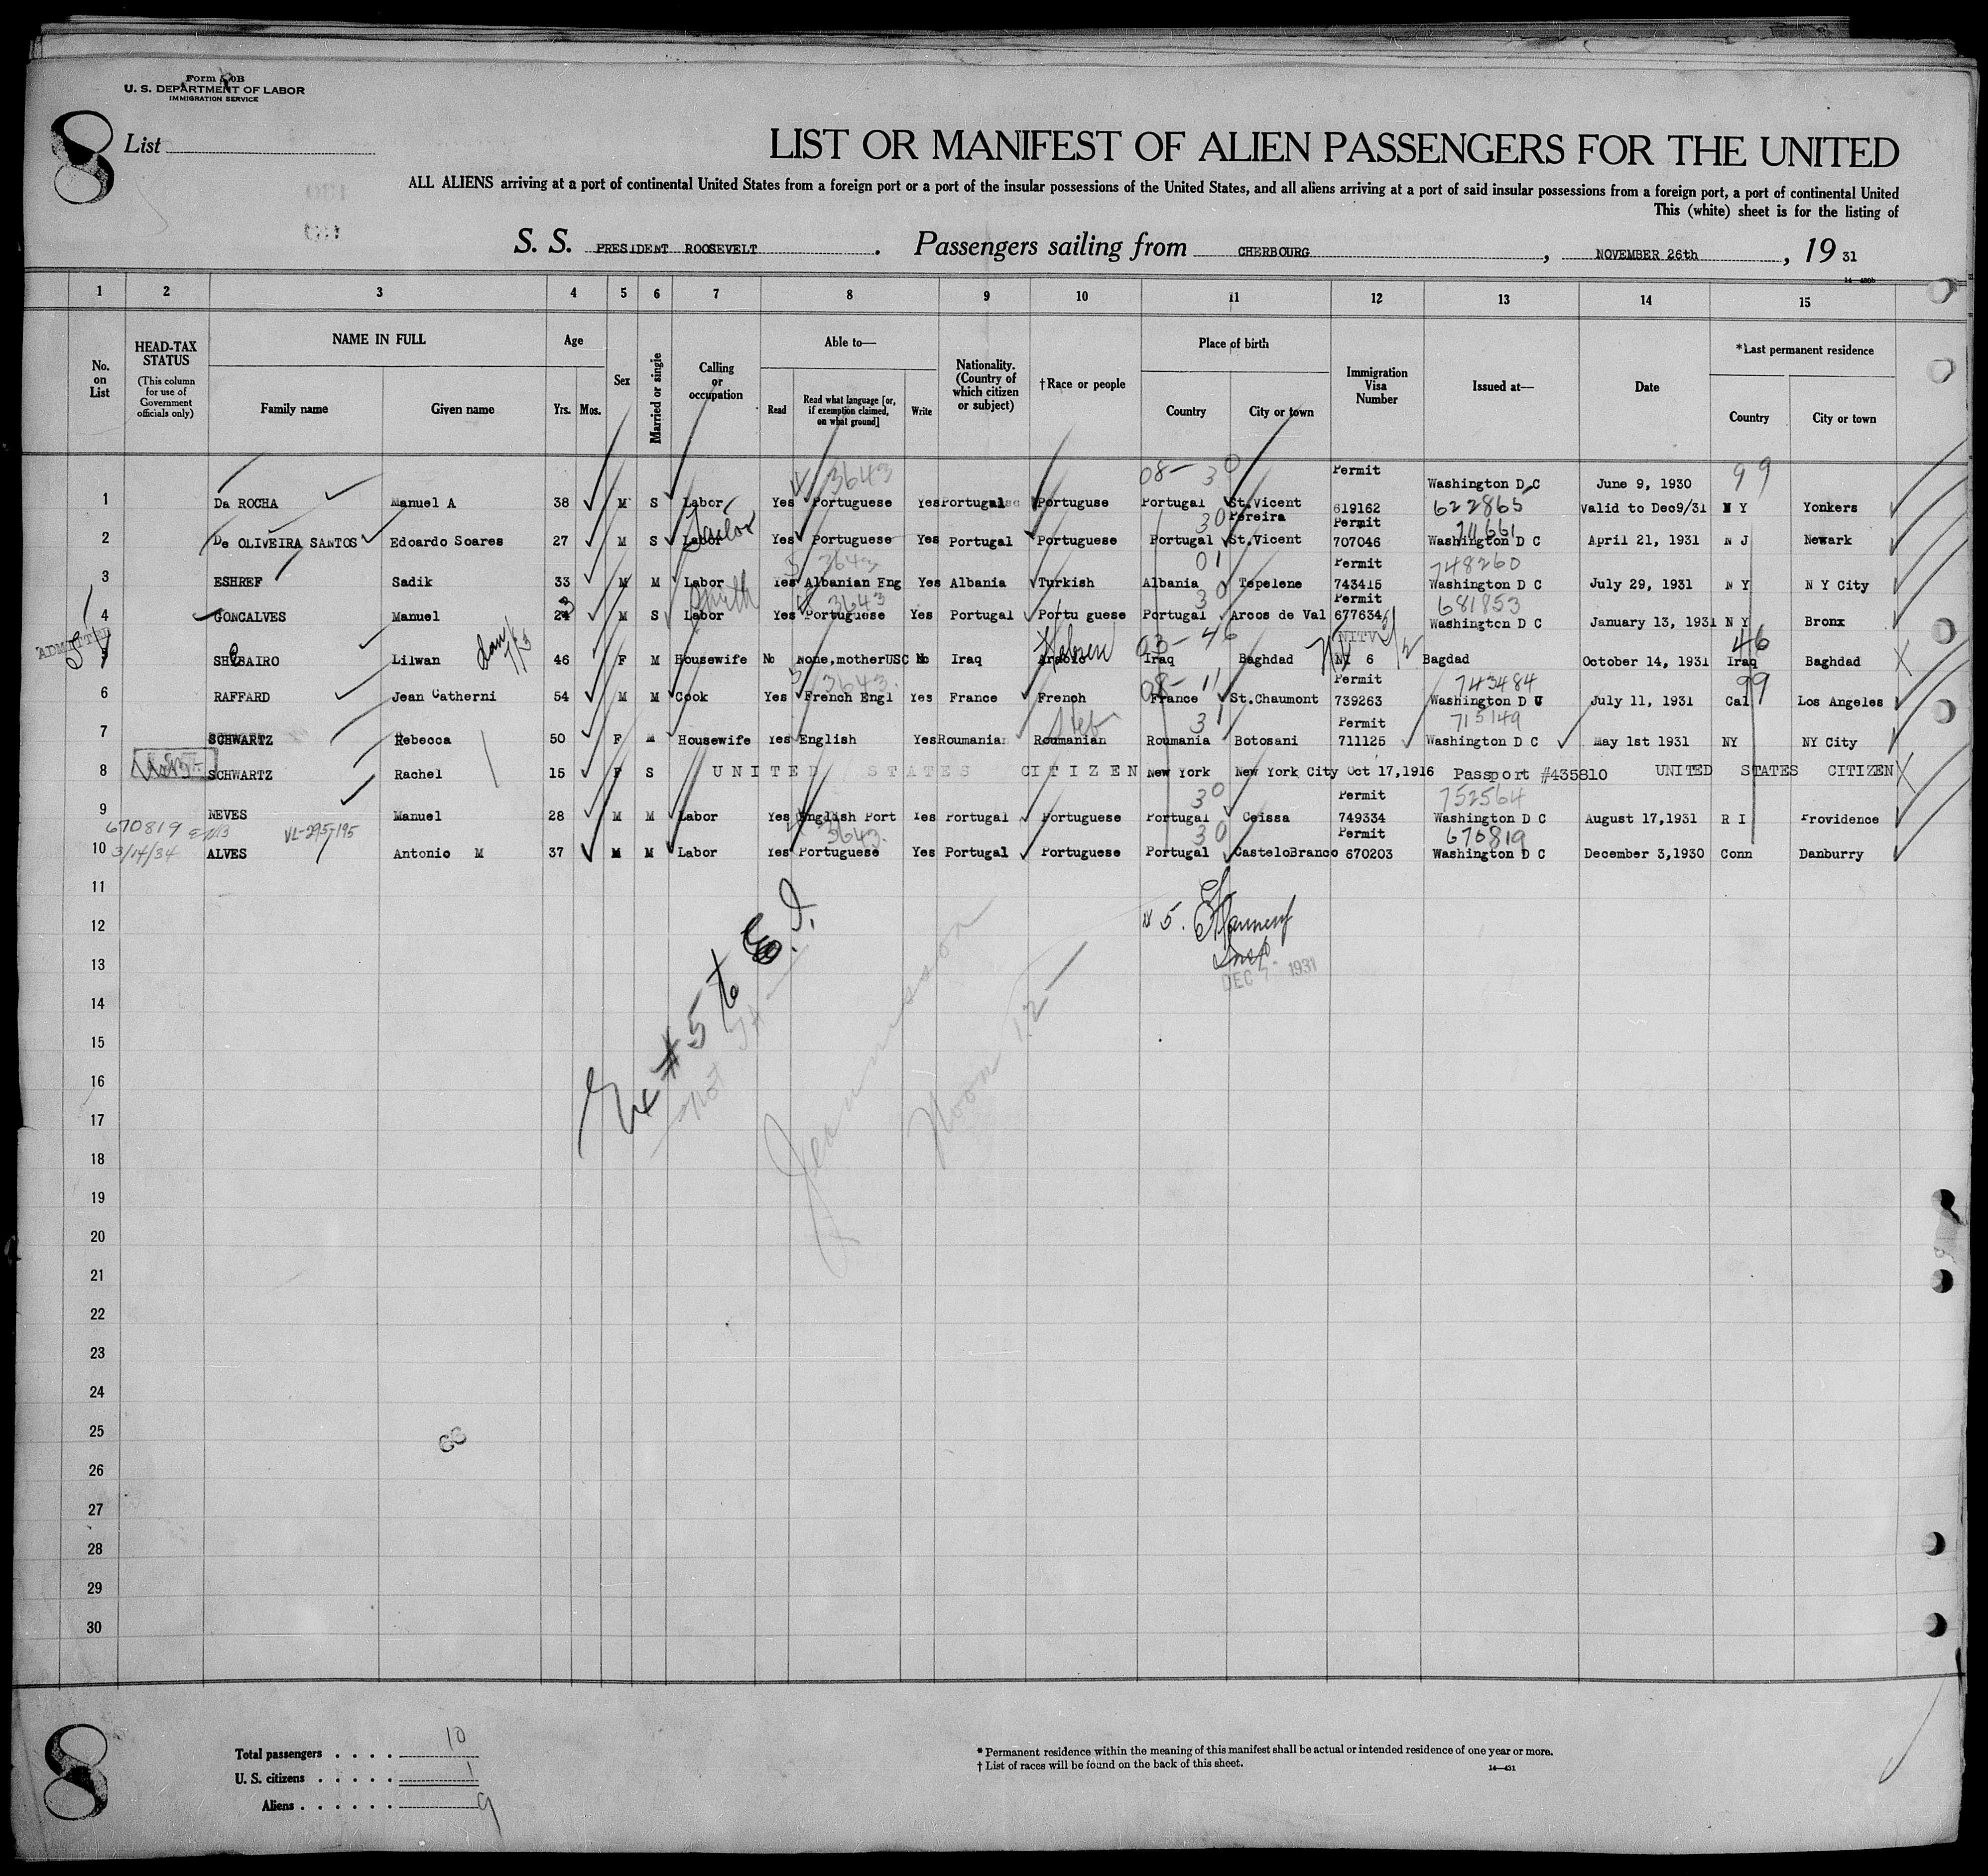 Form 500B
U. S. DEPARTMENT OF LABOR
IMMIGRATION SERVICE
8 List
LIST OR MANIFEST OF ALIEN PASSENGERS FOR THE UNITED
ALL ALIENS arriving at a port of continental United States from a foreign port or a port of the insular possessions of the United States, and all aliens arriving at a port of said insular possessions from a foreign port, a port of continental United
This (white) sheet is for the listing of
S. S. PRESIDENT ROOSEVELT. Passengers sailing from CHERBOURG, NOVEMBER 26th, 19 31
1 2 3 4 5 6 7 8 9 10 11 12 13 14 15
No. on List
HEAD-TAX STATUS
(This column for use of Government officials only)
NAME IN FULL
Family name Given name
Age
Yrs. Mos.
Sex
Married or single
Calling or occupation
Able to—
Read
Read what language [or, if exemption claimed, on what ground]
Write
Nationality. (Country of which citizen or subject)
†Race or people
Place of birth
Country City or town
Immigration Visa Number
Issued at—
Date
*Last permanent residence
Country City or town
3643 08- 30 Permit 99
1 Da ROCHA Manuel A 38 M S Labor Yes Portuguese Yes Portugal Portuguse Portugal St.Vicent Pereira 619162 Washington D C 622865 June 9, 1930 Valid to Dec9/31 N Y Yonkers
30 Permit 711661
2 De OLIVEIRA SANTOS Edoardo Soares 27 M S Labor Yes Portuguese Yes Portugal Portuguese Portugal St.Vicent 707046 Washington D C April 21, 1931 N J Newark
3643 01 Permit 748260
3 ESHREF Sadik 33 M M Labor Yes Albanian Eng Yes Albania Turkish Albania Tepelene 743415 Washington D C July 29, 1931 N Y N Y City
3643 30 Permit 681853
4 GONCALVES Manuel 24 M S Labor Yes Portuguese Yes Portugal Portu guese Portugal Arcos de Val 677634 Washington D C January 13, 1931 N Y Bronx
ADMITTED Hebrew 03-46 NITV 46
5 SHEBAIRO Lilwan 46 F M Housewife No None,motherUSC No Iraq Arabic Iraq Baghdad NI 6 Bagdad October 14, 1931 Iraq Baghdad
3643 08-11 Permit 743484 99
6 RAFFARD Jean Catherni 54 M M Cook Yes French Engl Yes France French France St.Chaumont 739263 Washington D C July 11, 1931 Cal Los Angeles
Heb 31 Permit 715149
7 SCHWARTZ Rebecca 50 F M Housewife Yes English Yes Roumania Roumanian Roumania Botosani 711125 Washington D C May 1st 1931 NY NY City
8 SCHWARTZ Rachel 15 F S UNITED STATES CITIZEN New York New York City Oct 17,1916 Passport #435810 UNITED STATES CITIZEN
30 Permit 752564
9 NEVES Manuel 28 M M Labor Yes English Port Yes Portugal Portuguese Portugal Ceissa 749334 Washington D C August 17,1931 R I Providence
670819 VL-295-195 3643 30 Permit 670819
10 3/14/34 ALVES Antonio M 37 M M Labor Yes Portuguese Yes Portugal Portuguese Portugal CasteloBranco 670203 Washington D C December 3,1930 Conn Danburry
11
12 # 5.
13 Insp
DEC 7 1931
14
15
16
17
18
19
20
21
22
23
24
25
26
27
28
29
30
Ex #5 to E.I.
Noon 12-
8
Total passengers . . . . 10
U. S. citizens . . . . . 1
Aliens . . . . . . 9
* Permanent residence within the meaning of this manifest shall be actual or intended residence of one year or more.
† List of races will be found on the back of this sheet.
14—431